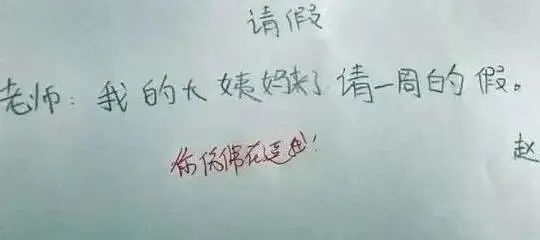 请假
老师：我的大姨妈来了请一周的假。
你伪佛在逗我！
赵